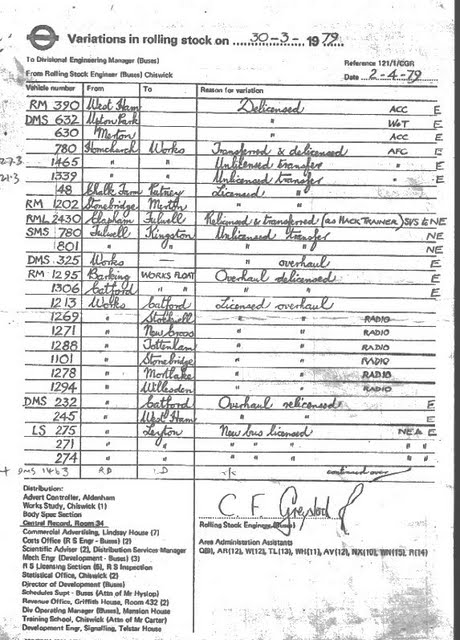 Variations in rolling stock on 30-3- 1979
To Divisional Engineering Manager (Buses)
Reference 121/1/CGR
From Rolling Stock Engineer (Buses) Chiswick
Date 2-4-79
Vehicle number From To Reason for variation
RM 390 West Ham Delicensed ACC E
DMS 632 Upton Park " W&T E
630 Merton " ACC E
27.3 780 Hornchurch Works Transferred & delicensed AFC E
21.3 1465 " " Unlicensed transfer " E
1339 " " Unlicensed transfer " E
48 Chalk Farm Putney Licensed " E
RM 1202 Stonebridge Merton " " E
RML 2430 Clapham Fulwell Relicensed & transferred (as HACK TRAINER) SYS E NE
SMS 780 Fulwell Kingston Unlicensed transfer NE
801 " " " " NE
DMS 325 Works — " overhaul E
RM 1295 Barking WORKS FLOAT Overhaul delicensed E
1306 Catford " " " E
1213 Works Catford Licensed overhaul
1269 " Stockwell " " RADIO
1271 " New Cross " " RADIO
1288 " Tottenham " " RADIO
1101 " Stonebridge " " RADIO
1278 " Mortlake " " RADIO
1294 " Willesden " " RADIO
DMS 232 " Catford Overhaul relicensed E
245 " West Ham " " E
LS 275 " Leyton New bus licensed NE & E
271 " " " " " " "
274 " " " " " " "
+ DMS 1463 RD continued over
Distribution:
Advert Controller, Aldenham
Works Study, Chiswick (1)
Body Spec Section
Central Record, Room 34
Commercial Advertising, Lindsay House (7)
Costs Office (R S Engr - Buses) (2)
Scientific Adviser (2), Distribution Services Manager
Mech Engr (Development - Buses) (3)
R S Licensing Section (5), R S Inspection
Statistical Office, Chiswick (2)
Director of Development (Buses)
Schedules Supt - Buses (Attn of Mr Hyslop)
Revenue Office, Griffith House, Room 432 (2)
Div Operating Manager (Buses), Mansion House
Training School, Chiswick (Attn of Mr Carter)
Development Engr, Signalling, Telstar House
Rolling Stock Engineer (Buses)
Area Administration Assistants
Q(9), AR(12), W(12), TL(13), WH(11), AV(12), NX(10), WN(15), R(14)